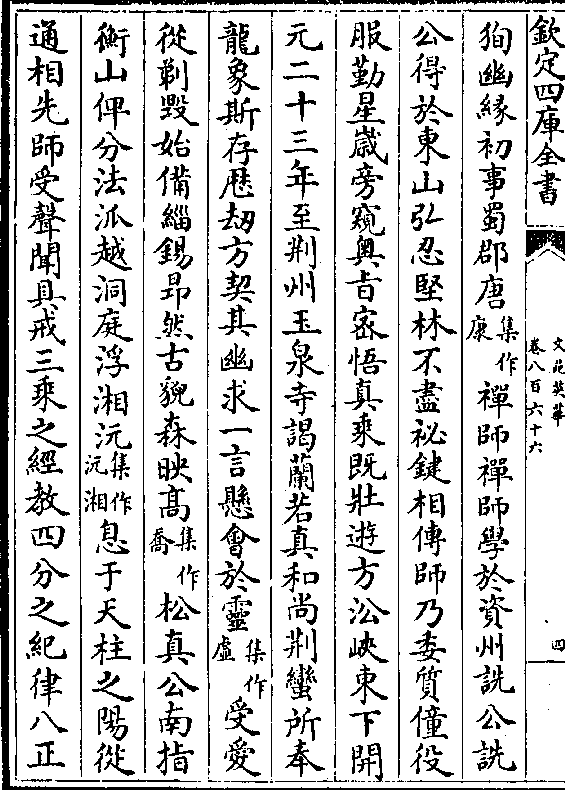 欽定四庫全書
文苑英華
卷八百六十六
四
狥幽緣初事蜀郡唐集作康禪師禪師學於資州詵公詵
公得於東山弘忍堅林不盡祕鍵相傳師乃委質僮役
服勤星嵗旁窺奥旨宻悟真乘既壯遊方沿峽東下開
元二十三年至荆州玉泉寺謁蘭若真和尚荆蠻所奉
龍象斯存厯劫方契其幽求一言懸會於靈集作虛受愛
從剃毁始備緇錫昻然古貌森映髙集作喬松真公南指
衡山俾分法派越洞庭浮湘沅集作沅湘息于天柱之陽從
通相先師受聲聞具戒三乘之經教四分之紀律八正